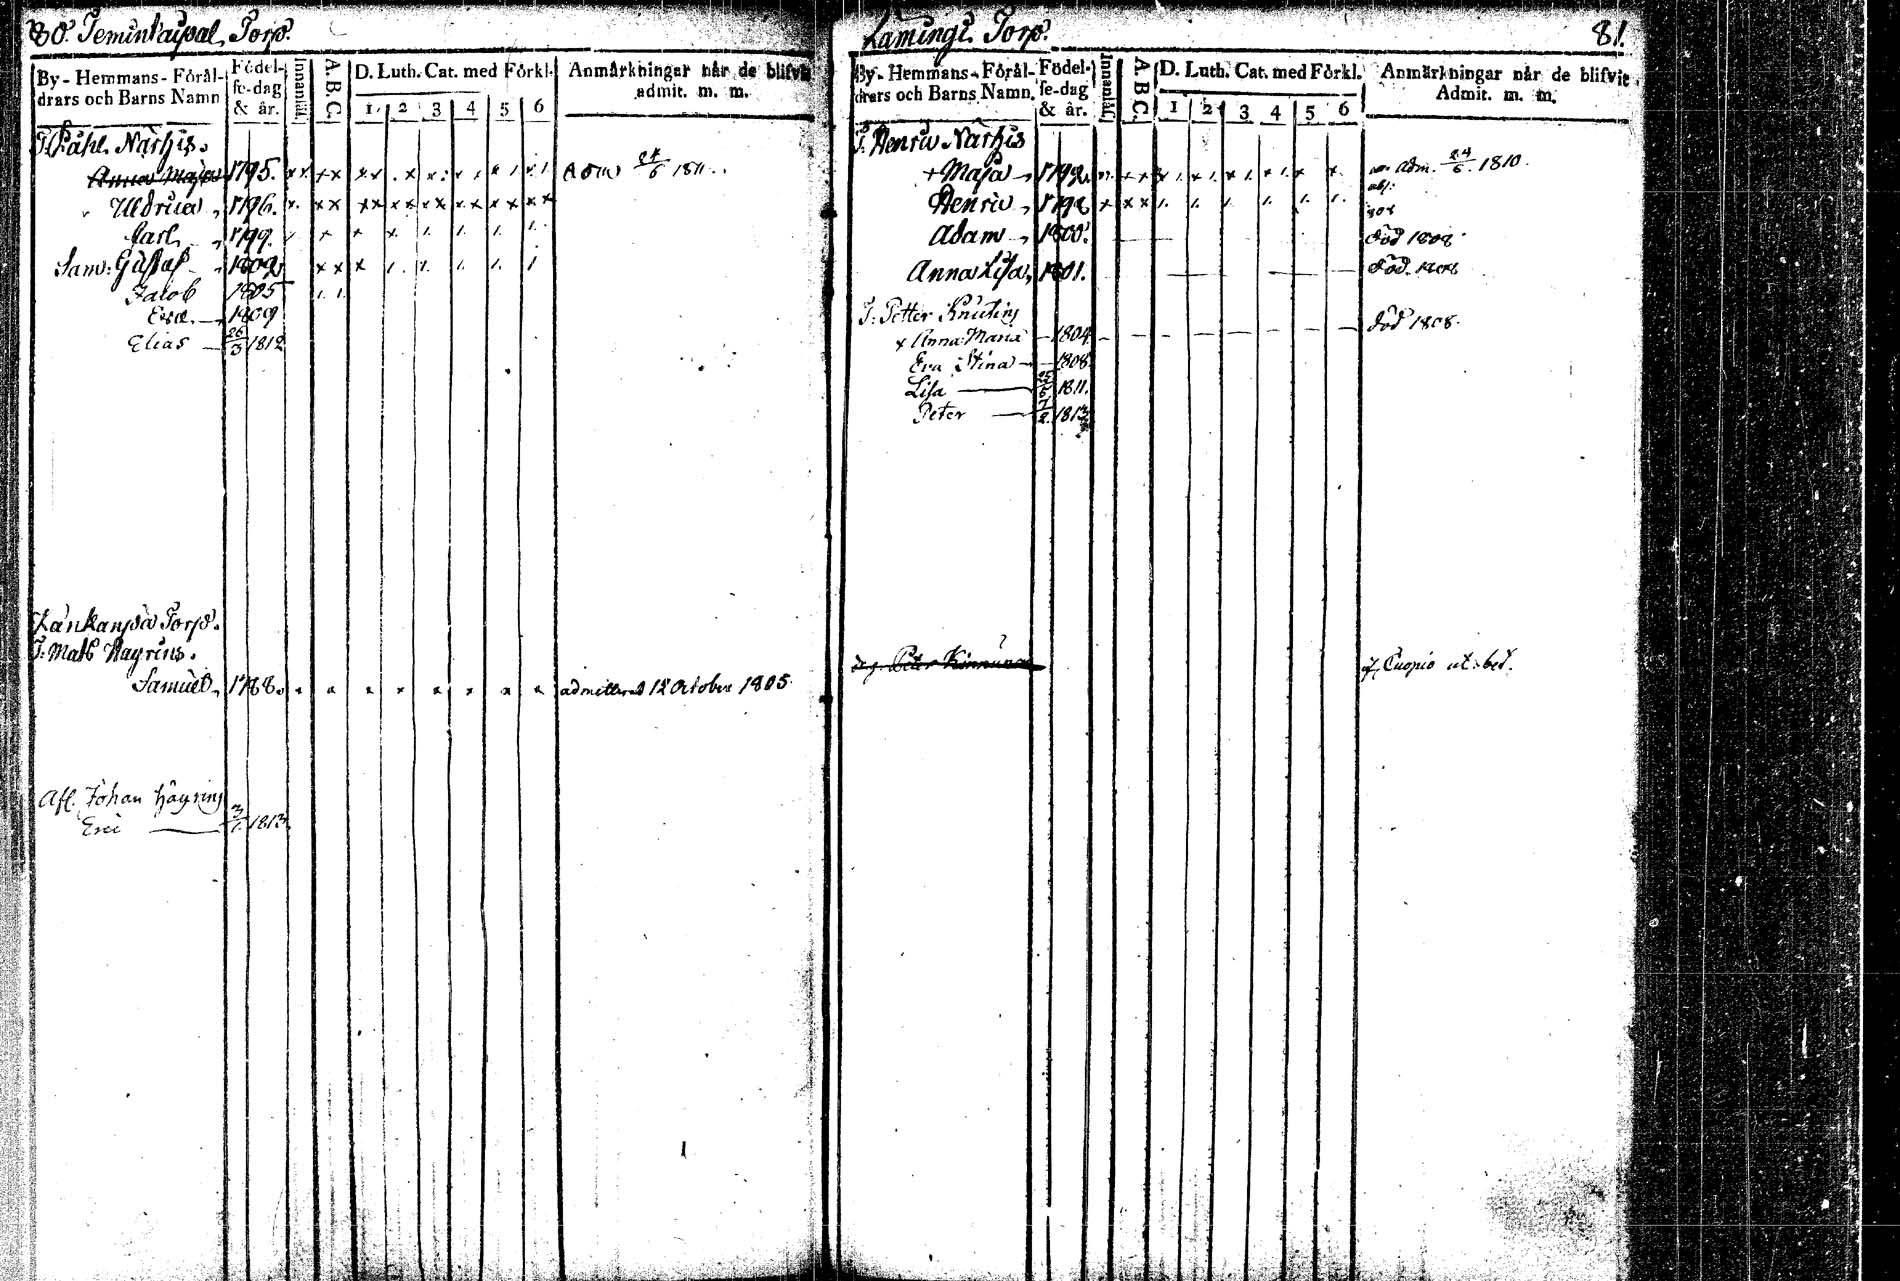 80. Temintaipal Torp.
By-Hemmans-Förål-
drars och Barns Namn
Födel-
se-dag
& år.
Innanläs.
A. B. C.
D. Luth. Cat. med Förkl.
1 2 3 4 5 6
Anmärkningar når de blifvit
admit. m. m.
T. Påhl Närhis.
Anna Maja 1795. Adm 24/6 1811.
Uldrica 1796.
Carl 1799.
Sam: Gustaf 1802
Jacob 1805
Eva 1809
Elias 26/3 1812
Torp.
T: Mats Häyrins.
Samuel 1788. admitterad 12 October 1805.
Afl. Johan Häyrins
Eric 3/1. 1813.
Lamingi Torp. 81.
By-Hemmans-Förål-
drars och Barns Namn.
Födel-
se-dag
& år.
Innanläs.
A. B. C.
D. Luth. Cat. med Förkl.
1 2 3 4 5 6
Anmärkningar når de blifvit
Admit. m. m.
T. Henric Närhis
+ Maja 1792. Adm. 24/6. 1810.
Henric 1798
Adam 1800. död 1808
Anna Lisa 1801. död. 1808
T: Petter Knutins
x Anna Maria 1804 död 1808.
Eva Stina 1808
Lisa 1811.
Peter 7/2. 1813
Peter Kinnunen Cuopio ut. bet.